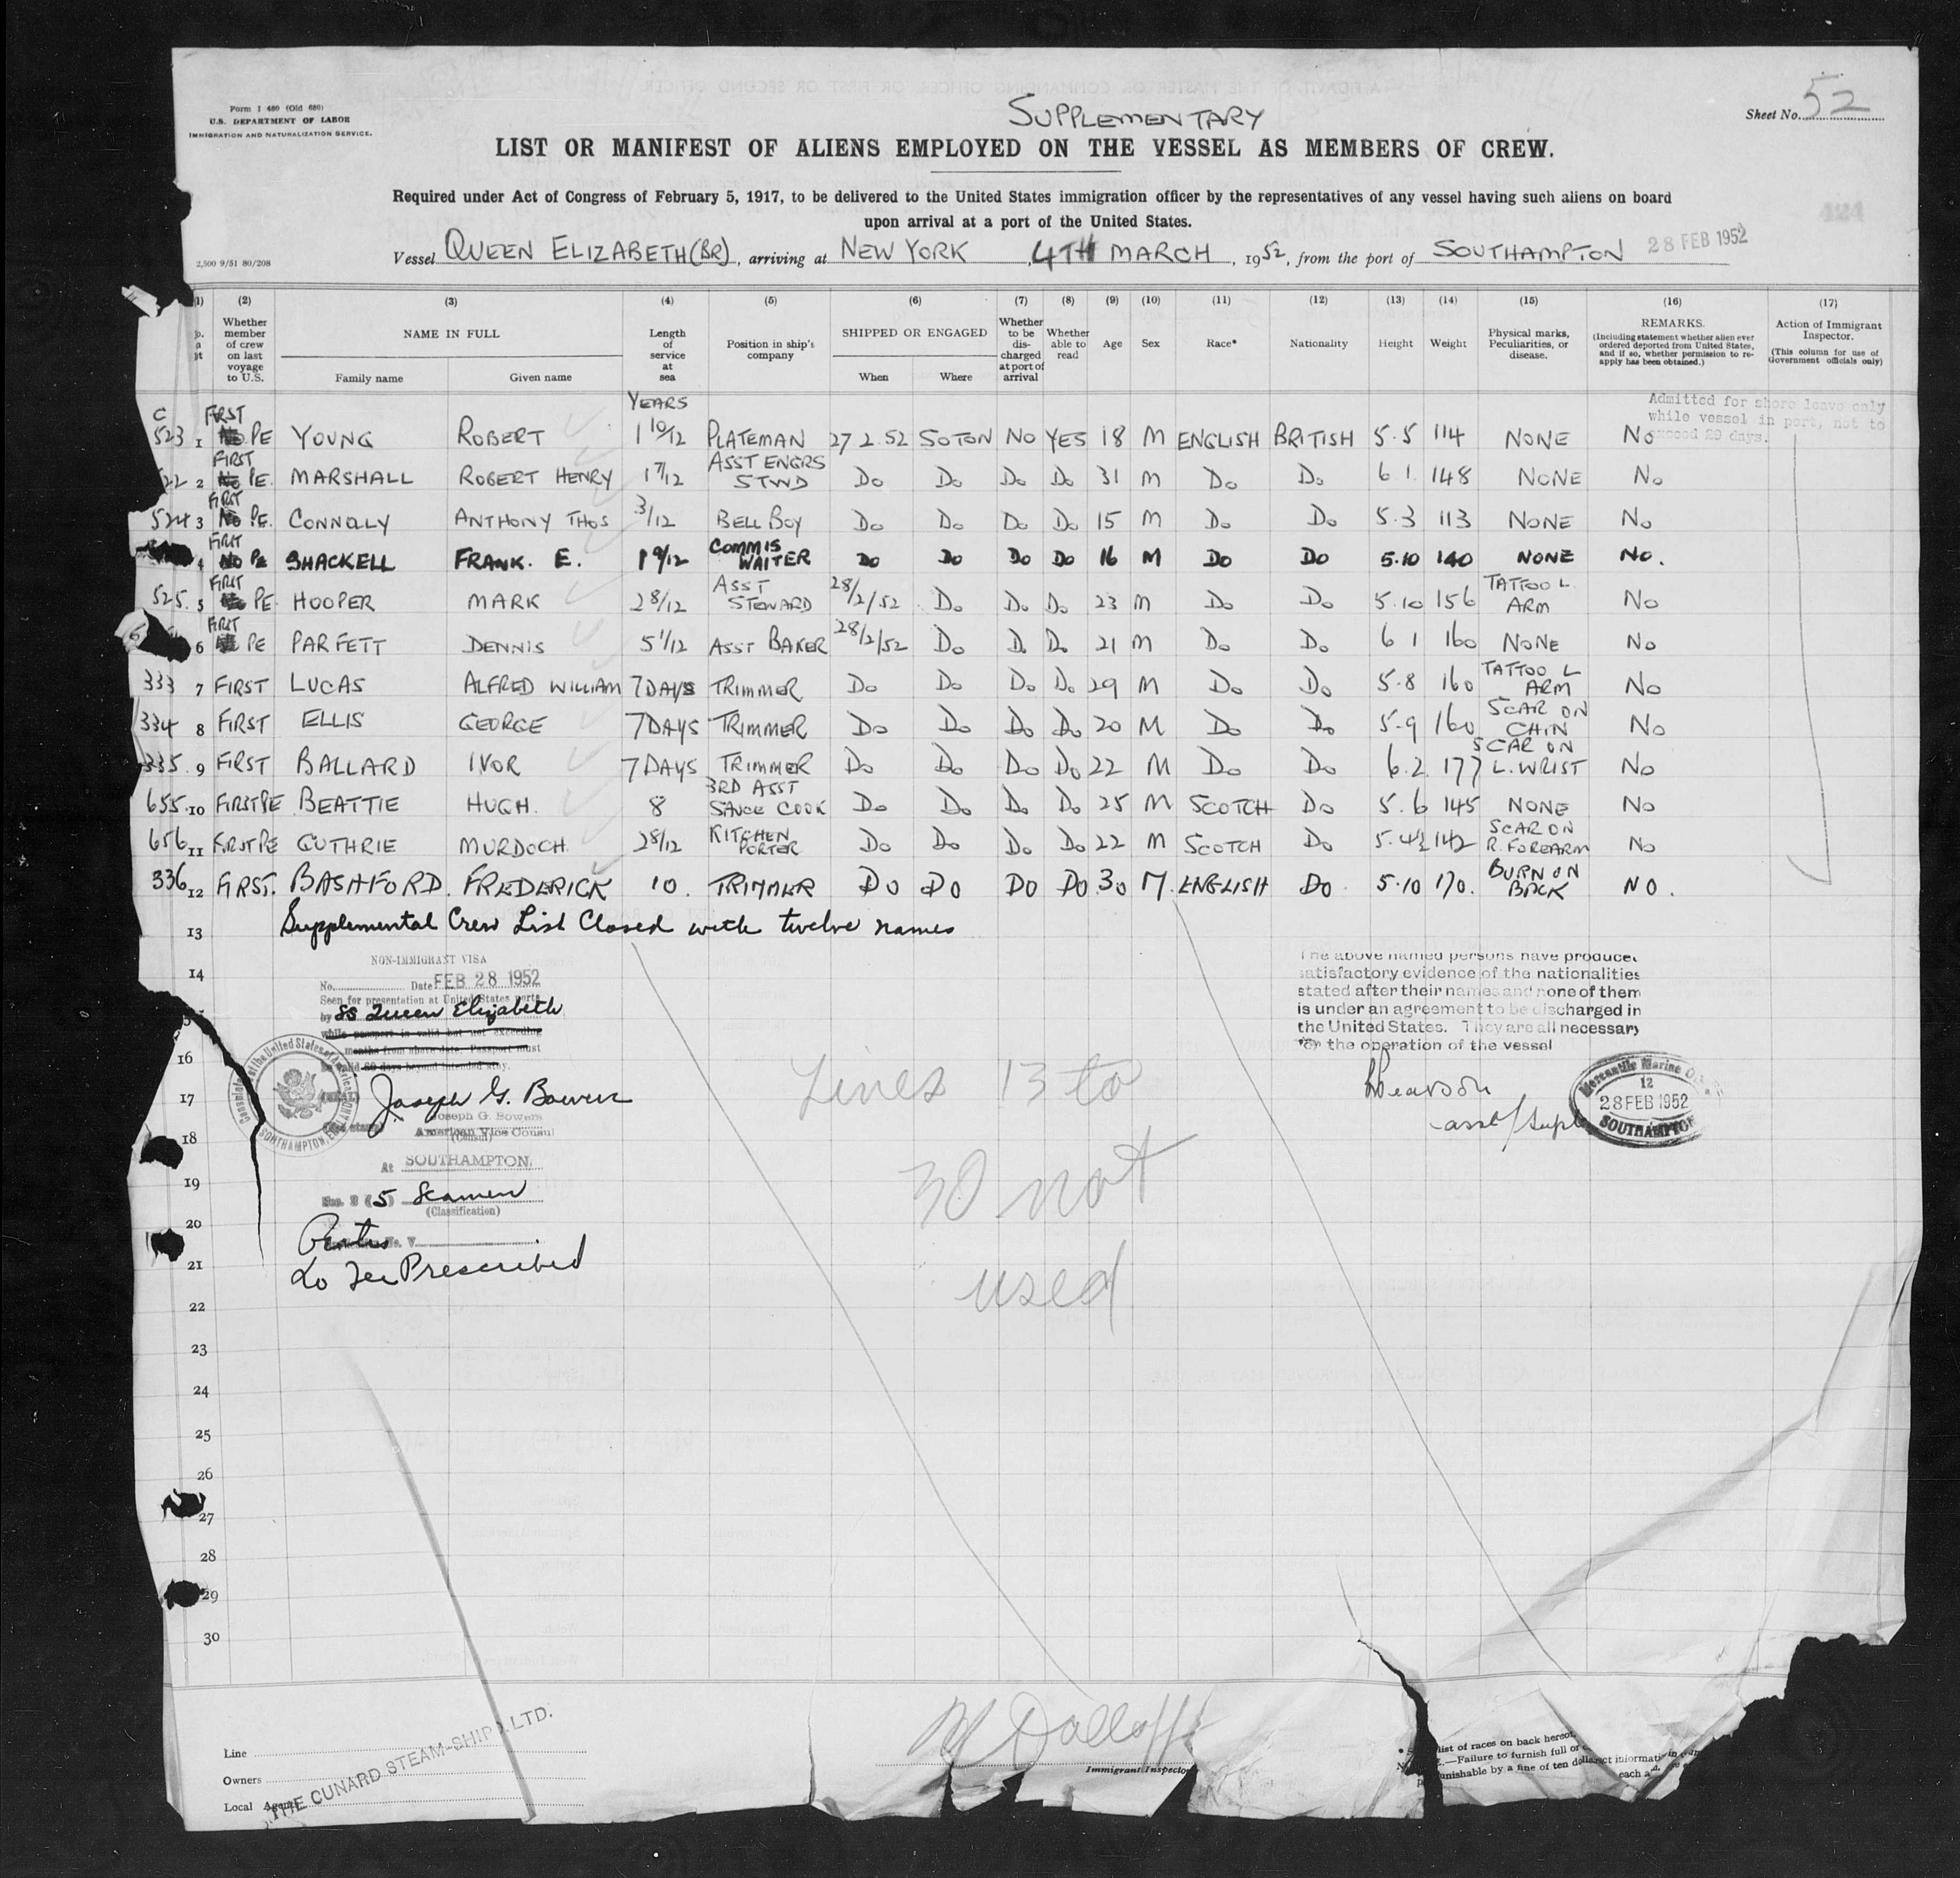 Form I 480 (Old 680)
U.S. DEPARTMENT OF LABOR
IMMIGRATION AND NATURALIZATION SERVICE.
SUPPLEMENTARY
Sheet No. 52
LIST OR MANIFEST OF ALIENS EMPLOYED ON THE VESSEL AS MEMBERS OF CREW.
Required under Act of Congress of February 5, 1917, to be delivered to the United States immigration officer by the representatives of any vessel having such aliens on board
upon arrival at a port of the United States.
2,500 9/51 80/208
Vessel QUEEN ELIZABETH (BR), arriving at NEW YORK, 4TH MARCH, 1952, from the port of SOUTHAMPTON 28 FEB 1952
(2) (3) (4) (5) (6) (7) (8) (9) (10) (11) (12) (13) (14) (15) (16) (17)
Whether member of crew on last voyage to U.S.
NAME IN FULL
Family name Given name
Length of service at sea
Position in ship's company
SHIPPED OR ENGAGED
When Where
Whether to be discharged at port of arrival
Whether able to read
Age Sex Race* Nationality Height Weight
Physical marks, Peculiarities, or disease.
REMARKS.
(Including statement whether alien ever ordered deported from United States, and if so, whether permission to reapply has been obtained.)
Action of Immigrant Inspector.
(This column for use of Government officials only)
YEARS
Admitted for shore leave only
while vessel in port, not to
exceed 29 days.
C 523 1 FIRST PE YOUNG ROBERT 1 10/12 PLATEMAN 27 2.52 SOTON NO YES 18 M ENGLISH BRITISH 5.5 114 NONE NO
22 2 FIRST NO PE. MARSHALL ROBERT HENRY 1 7/12 ASST ENGRS STWD DO DO DO DO 31 M DO DO 6 1. 148 NONE NO
524 3 FIRST NO PE. CONNOLY ANTHONY THOS 3/12 BELL BOY DO DO DO DO 15 M DO DO 5.3 113 NONE NO
4 FIRST NO PE SHACKELL FRANK. E. 1 9/12 COMMIS WAITER DO DO DO DO 16 M DO DO 5.10 140 NONE NO.
525. 5 FIRST PE. HOOPER MARK 2 8/12 ASST STEWARD 28/2/52 DO DO DO 23 M DO DO 5.10 156 TATTOO L ARM NO
6 FIRST PE PARFETT DENNIS 5 1/12 ASST BAKER 28/2/52 DO D. DO 21 M DO DO 6 1 160 NONE NO
333 7 FIRST LUCAS ALFRED WILLIAM 7 DAYS TRIMMER DO DO DO DO 29 M DO DO 5.8 160 TATTOO L ARM NO
334 8 FIRST ELLIS GEORGE 7 DAYS TRIMMER DO DO DO DO 20 M DO DO 5.9 160 SCAR ON CHIN NO
335. 9 FIRST BALLARD IVOR 7 DAYS TRIMMER DO DO DO DO 22 M DO DO 6.2 177 SCAR ON L. WRIST NO
655. 10 FIRST PE BEATTIE HUGH. 8 3RD ASST SAUCE COOK DO DO DO DO 25 M SCOTCH DO 5.6 145 NONE NO
656 11 FIRST PE GUTHRIE MURDOCH. 2 8/12 KITCHEN PORTER DO DO DO DO 22 M SCOTCH DO 5.4½ 142 SCAR ON R. FOREARM NO
336 12 FIRST. BASHFORD. FREDERICK 10. TRIMMER DO DO DO DO 30 M. ENGLISH DO. 5.10 170. BURN ON BACK NO.
13 Supplemental Crew List Closed with twelve names
14
16
17
18
19
20
21
22
23
24
25
26
27
28
29
30
NON-IMMIGRANT VISA
No. Date FEB 28 1952
Seen for presentation at United States ports
by SS Queen Elizabeth
while passport is valid but not exceeding
months from above date. Passport must
valid 60 days beyond intended stay.
Joseph G. Bowers
Joseph G. Bowers
American Vice Consul
(Consul)
At SOUTHAMPTON.
(5) Seamen
(Classification)
No Fee Prescribed
Lines 13 to
30 not
used
The above named persons have produced
satisfactory evidence of the nationalities
stated after their names and none of them
is under an agreement to be discharged in
the United States. They are all necessary
for the operation of the vessel
Pearson
asst/Supt
Mercantile Marine
12
28 FEB 1952
SOUTHAMPTON
Line
Owners
Local Agents
THE CUNARD STEAM-SHIP LTD.
Immigrant Inspector
list of races on back hereof.
—Failure to furnish full or
punishable by a fine of ten dollars
each